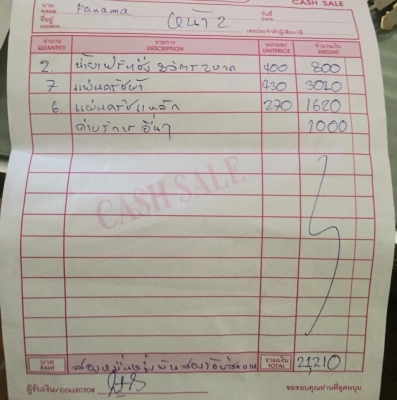 CASH SALE
นาม NAME Panama หน้า 2 วันที่ DATE
ที่อยู่ ADDRESS เลขประจำตัวผู้เสียภาษี
จำนวน QUANTITY รายการ DESCRIPTION หน่วยละ UNITPRICE จำนวนเงิน AMOUNT
2. 400 800
7 แผ่นคลัชผ้า 430 3010
6. แผ่นคลัชเหล็ก 270 1620
อื่นๆ 1000
CASH SALE
บาท BAHT รวมเงิน TOTAL 21,210
ผู้รับเงิน/COLLECTOR ขอขอบคุณท่านที่อุดหนุน